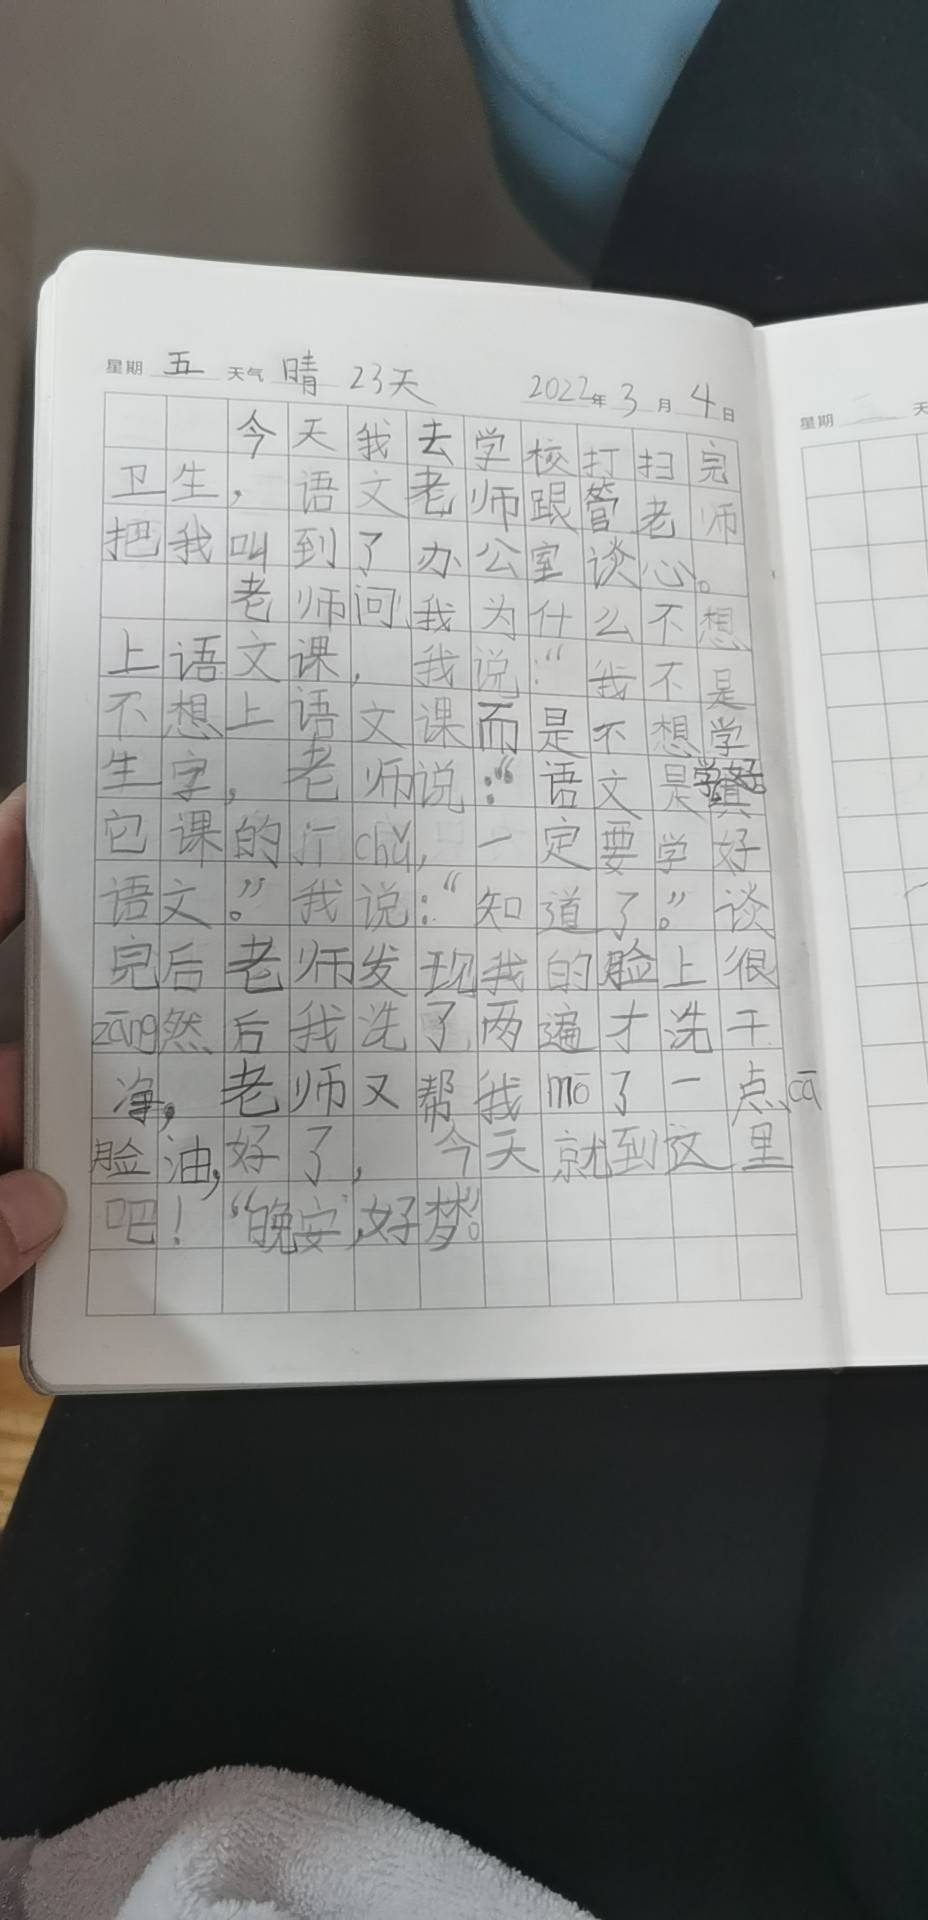 星期 五 天气 晴 23天 2022年 3 月 4 日
今天我去学校打扫完
卫生，语文老师跟管老师
把我叫到了办公室谈心。
老师问我为什么不想
上语文课，我说：“我不是
不想上语文课而是不想学
生字，老师说：“语文是学好
它课的chǔ，一定要学好
语文。”我说：“知道了。”谈
完后老师发现我的脸上很
zāng然后我洗了两遍才洗干
海，老师又帮我mō了一点cā
脸油，好了，今天就到这里
吧！“晚安”，好梦“。
星期 天